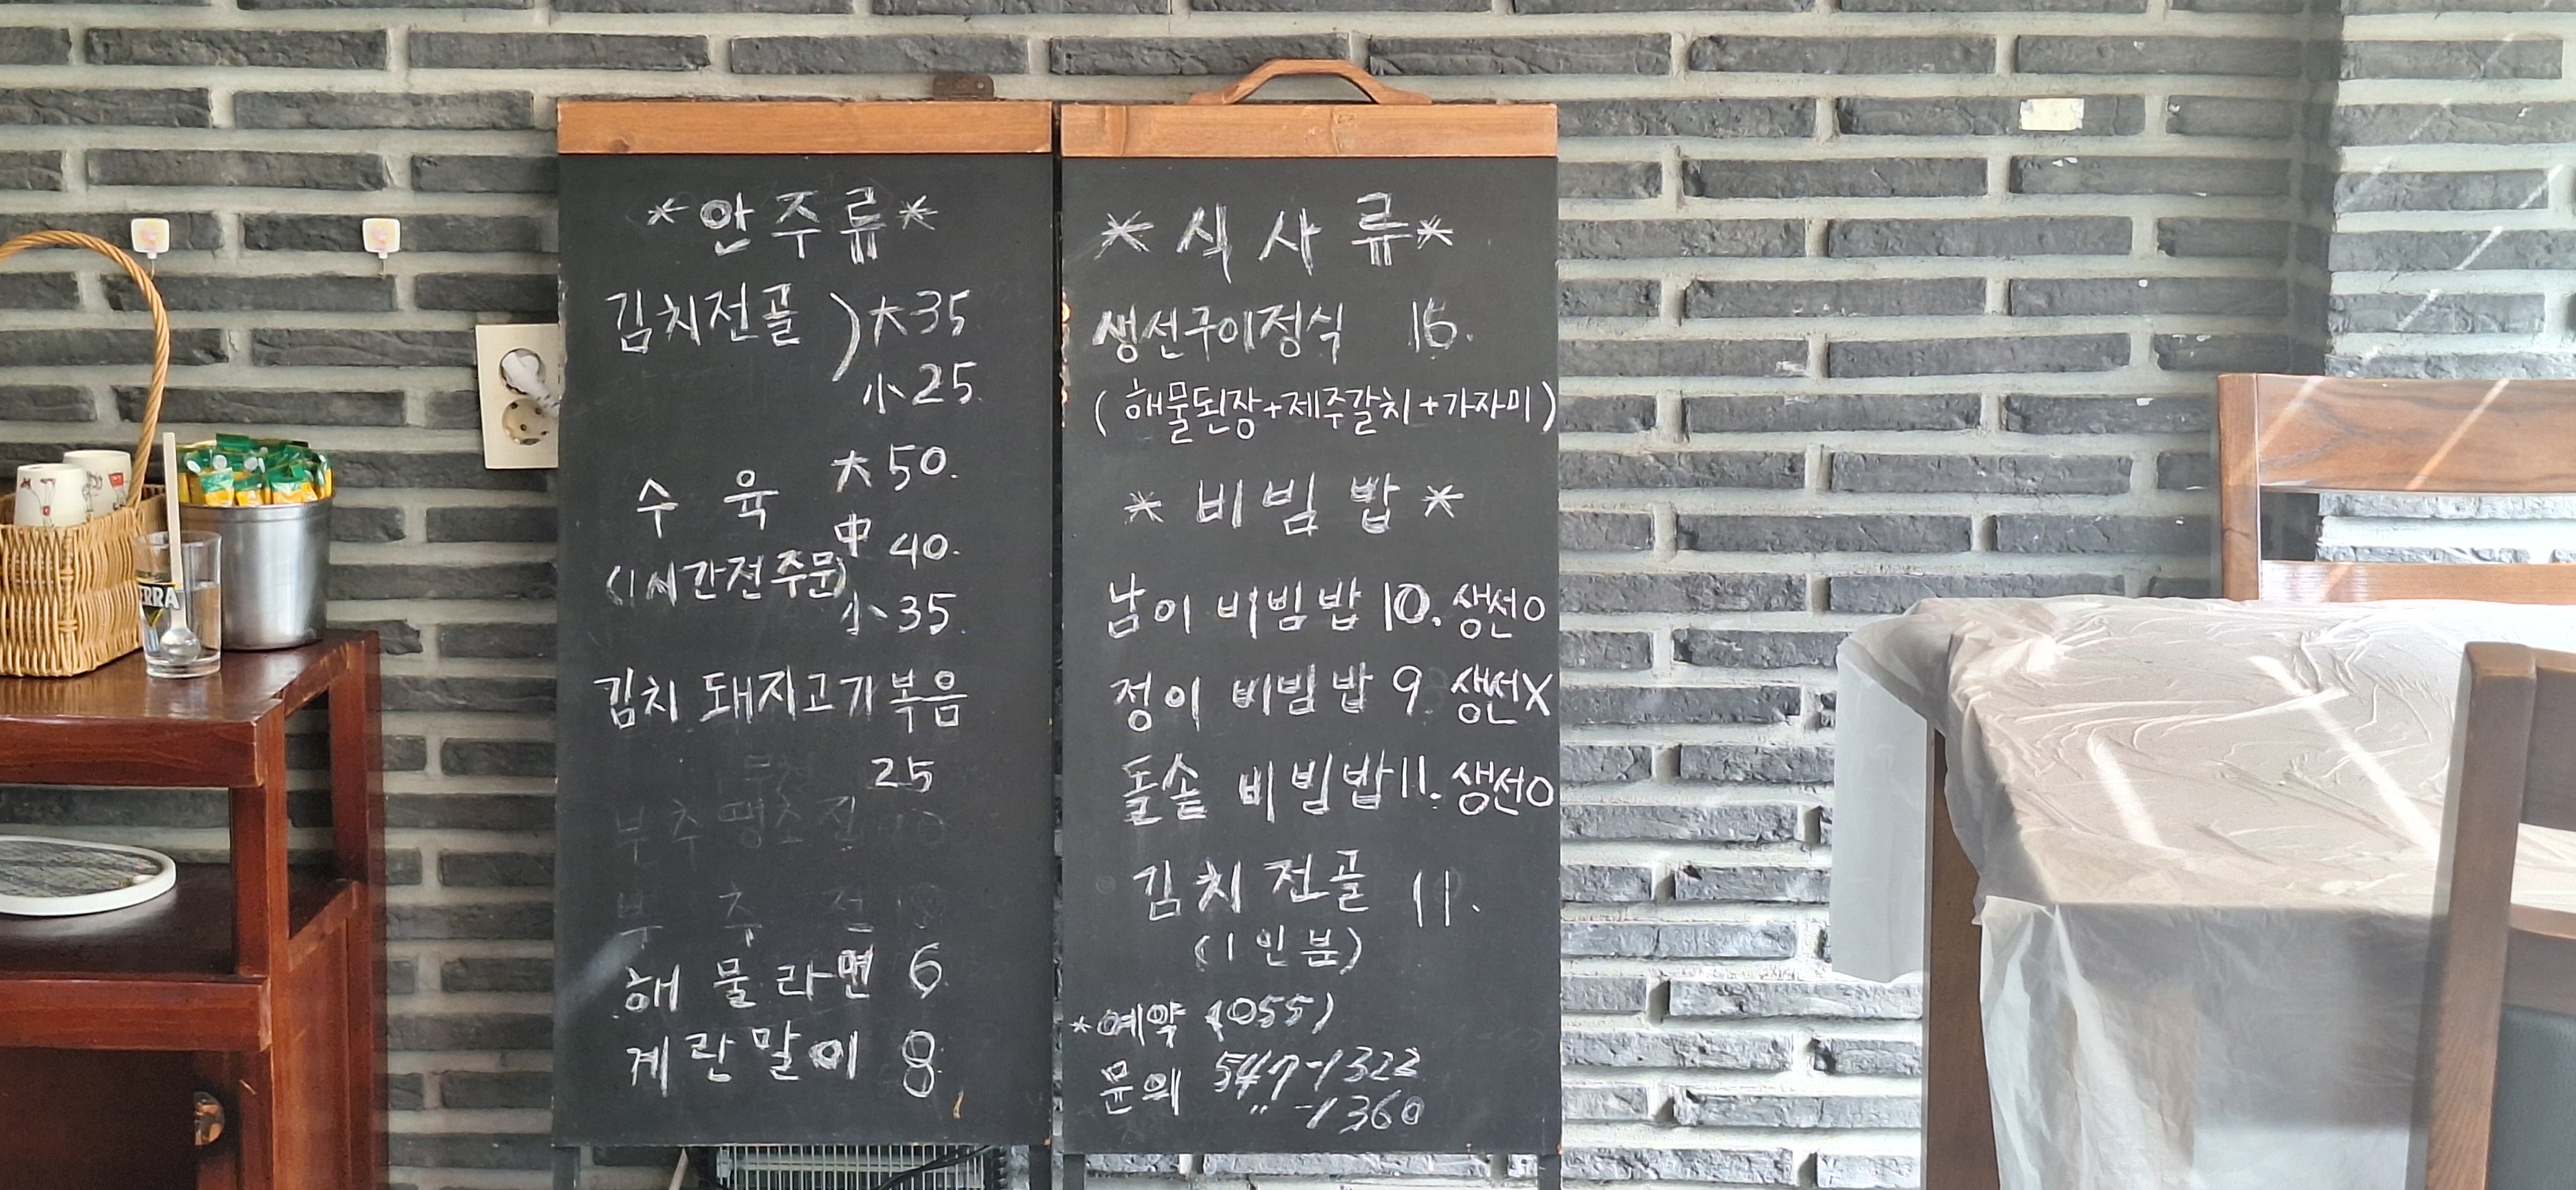 *안주류*
김치전골 ) 大 35
小 25
수육 大 50.
中 40.
(1시간전 주문)
小 35.
김치 돼지고기 복음
25
부추땡초전 10
부추전
해물라면 6
계란말이 8
*식사류*
생선구이정식 16.
(해물된장+제주갈치+가자미)
*비빔밥*
남이 비빔밥 10. 생선O
정이 비빔밥 9 생선X
돌솥 비빔밥 11. 생선O
김치전골 11.
(1인분)
*예약 (055)
문의 547-1322
〃 -1360
ERRA